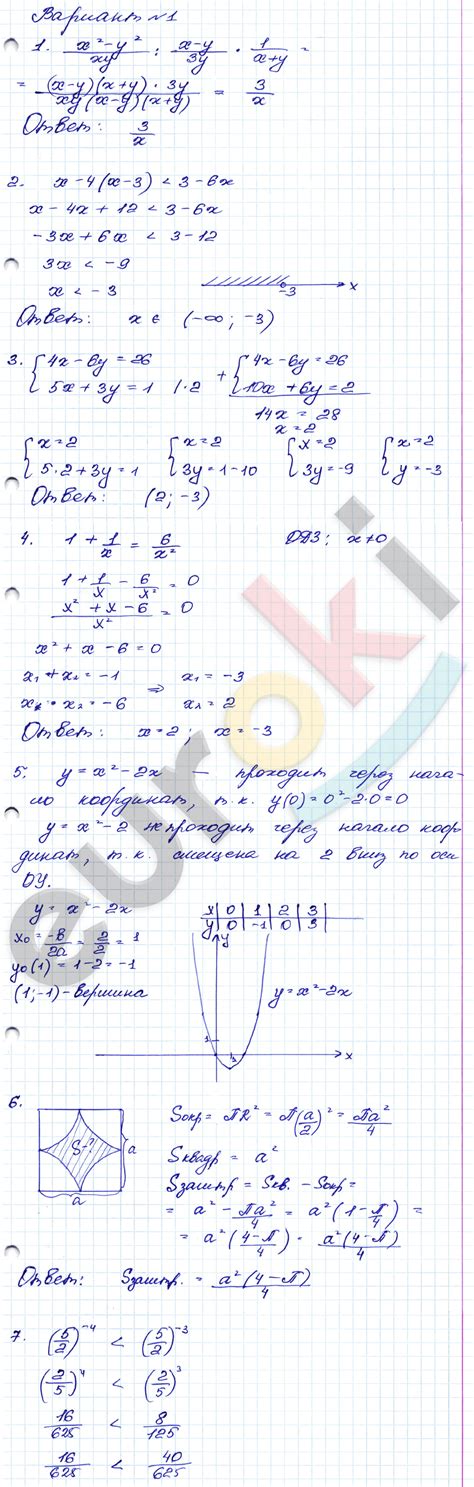 Вариант №1
1. (x²-y²)/(xy) : (x-y)/(3y) · 1/(x+y) =
= ((x-y)(x+y)·3y)/(xy(x-y)(x+y)) = 3/x
Ответ: 3/x
2. x-4(x-3) < 3-6x
x-4x+12 < 3-6x
-3x+6x < 3-12
3x < -9
x < -3
-3 x
Ответ: x ∈ (-∞; -3)
3. { 4x-6y=26 + { 4x-6y=26
5x+3y=1 |·2 10x+6y=2
14x = 28
x=2
{ x=2 { x=2 { x=2 { x=2
5·2+3y=1 3y=1-10 3y=-9 y=-3
Ответ: (2; -3)
4. 1 + 1/x = 6/x² ОДЗ: x≠0
1 + 1/x - 6/x² = 0
(x²+x-6)/x² = 0
x²+x-6=0
x₁+x₂=-1 ⇒ x₁=-3
x₁·x₂=-6 x₂=2
Ответ: x=2; x=-3
5. y=x²-2x — проходит через нача-
ло координат, т.к. y(0)=0²-2·0=0
y=x²-2 не проходит через начало коор-
динат, т.к. смещена на 2 вниз по оси
OY.
y=x²-2x
x 0 1 2 3
y 0 -1 0 3
x₀ = -b/2a = 2/2 = 1
y₀(1)=1-2=-1
(1;-1)-вершина
y
y=x²-2x
1
1
x
6. S-? a a
Sокр= ПR² = П(a/2)² = Пa²/4
Sквадр = a²
Sзаштр = Sкв. - Sокр=
= a² - Пa²/4 = a²(1-П/4) =
= a²((4-П)/4) = a²(4-П)/4
Ответ: Sзаштр. = a²(4-П)/4
7. (5/2)⁻⁴ < (5/2)⁻³
(2/5)⁴ < (2/5)³
16/625 < 8/125
16/625 < 40/625
euroki